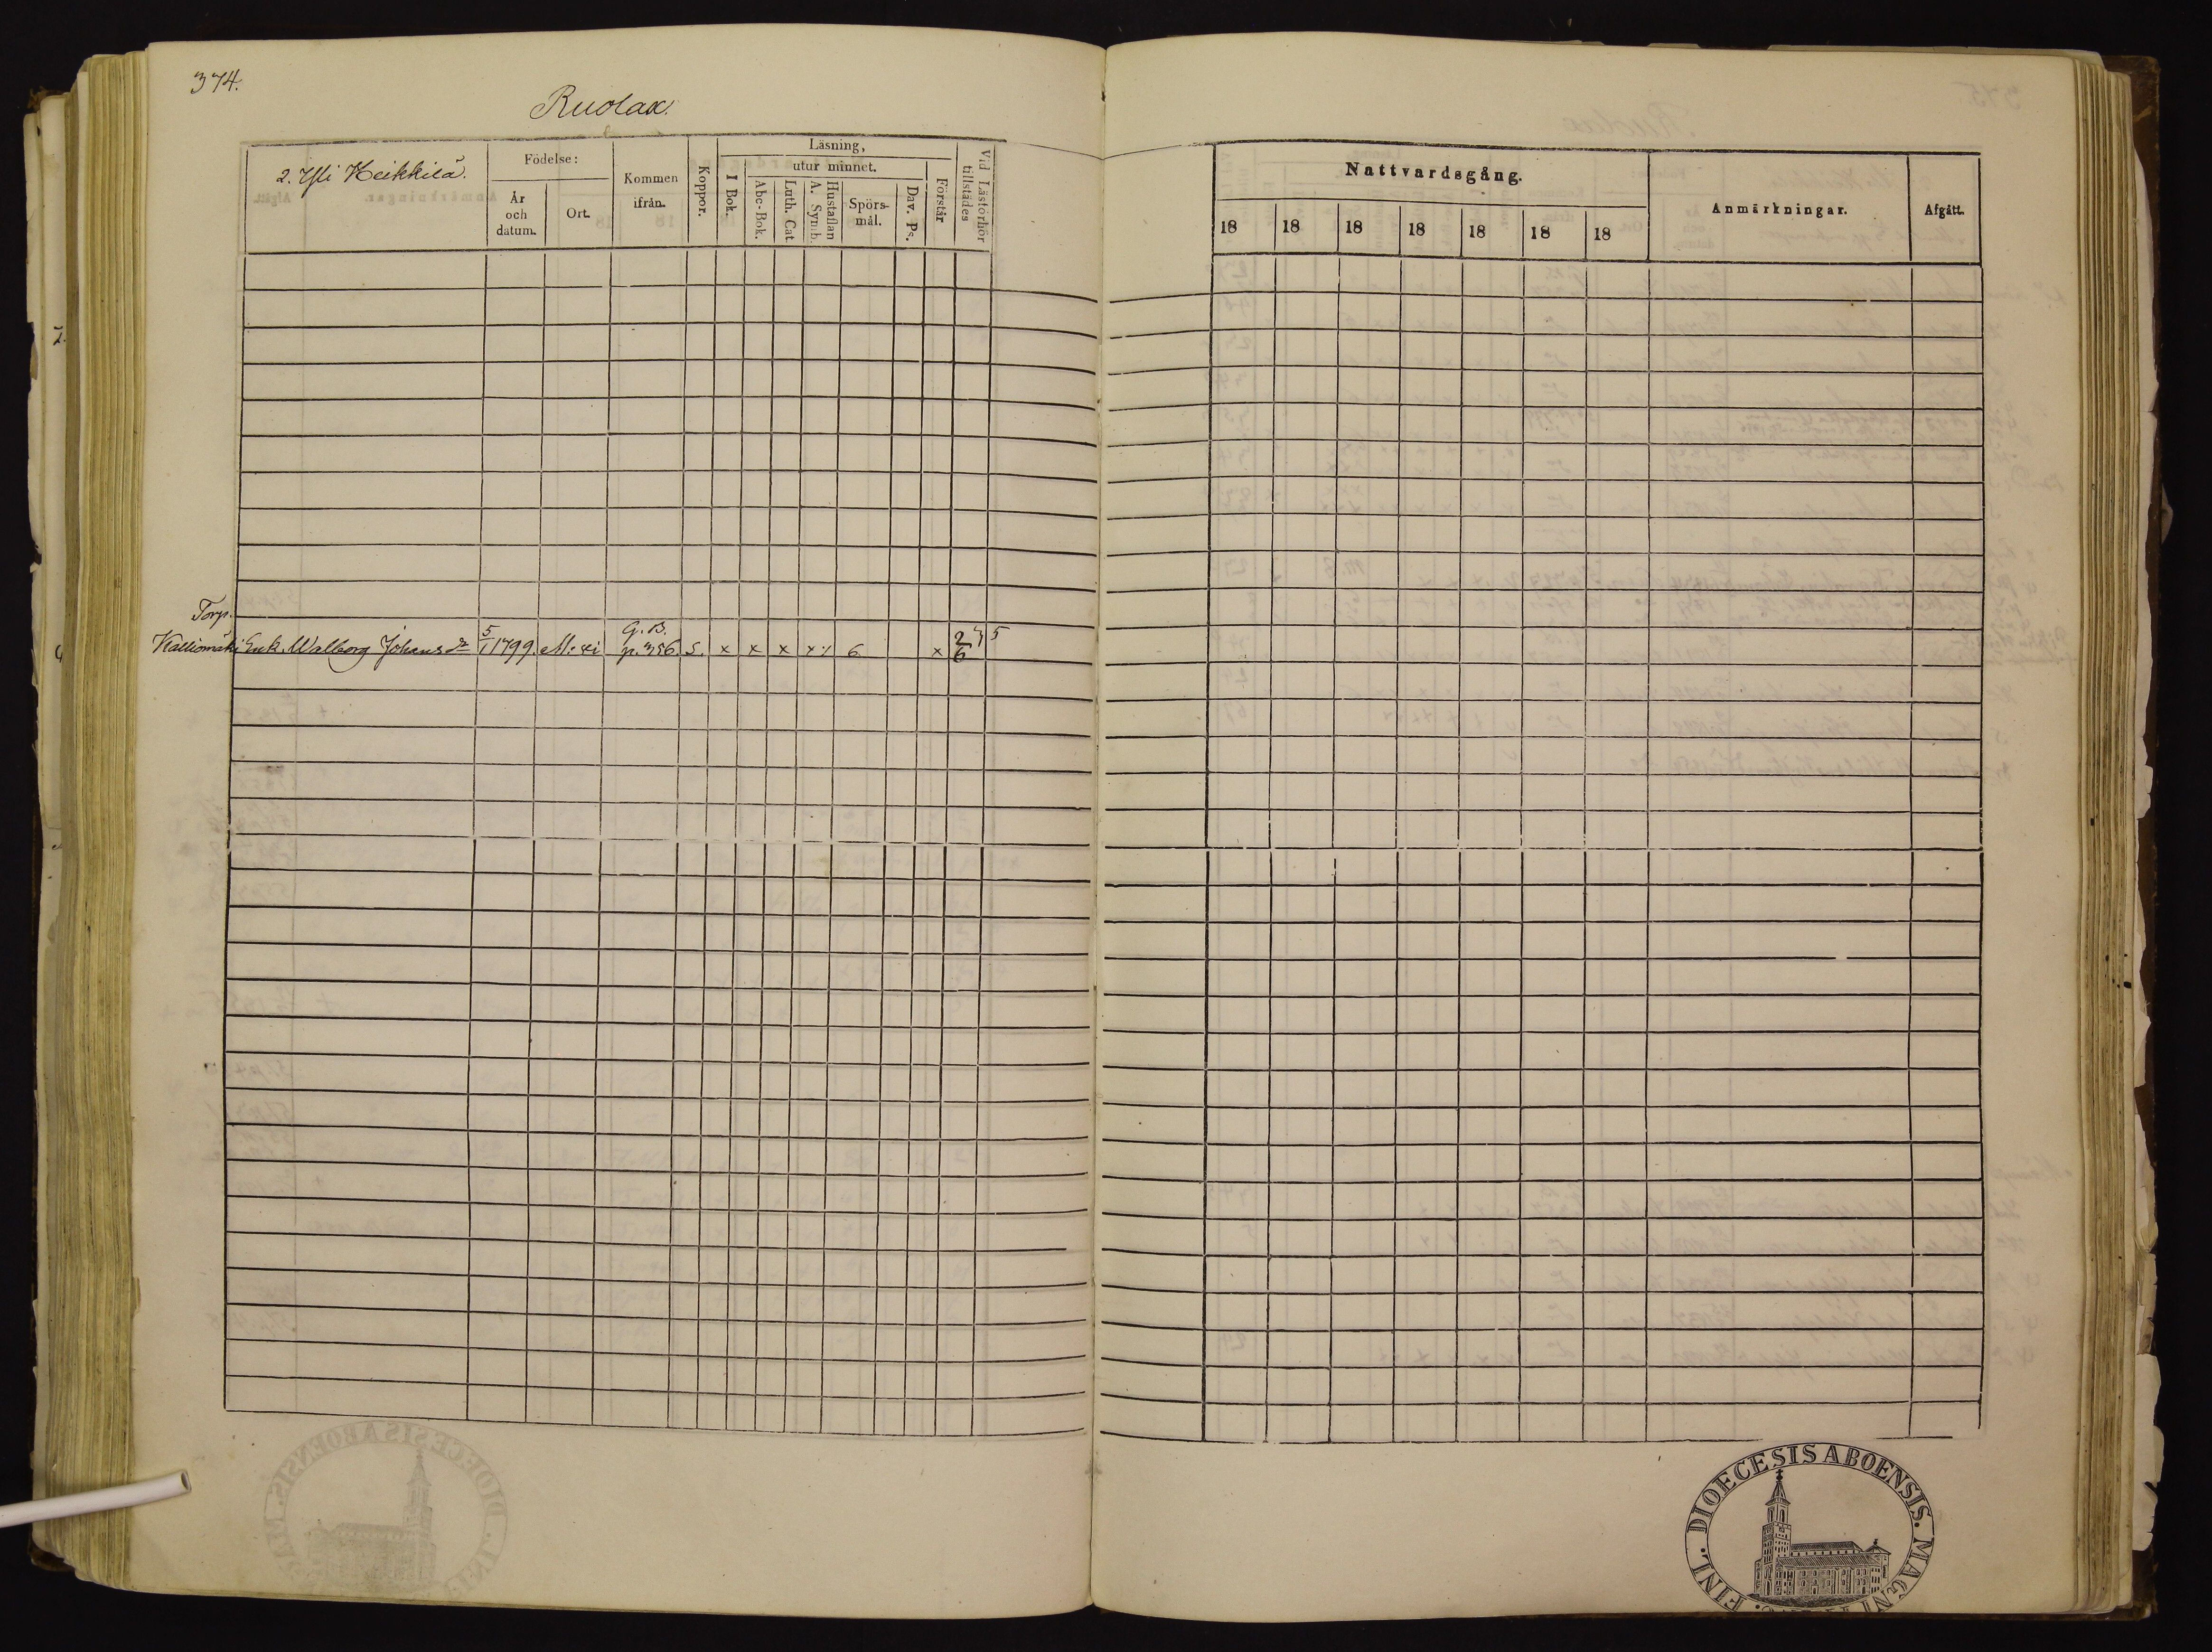 374.
Ruolax.
2. Yli Heikkilä.
Födelse:
År
och
datum.
Ort.
Kommen
ifrån.
Koppor.
Läsning,
I Bok.
utur minnet.
Abc-Bok.
Luth. Cat
Hustaflan
A. Symb.
Spörs-
mål.
Dav. Ps.
Förstår
Vid Läsförhör
tillstädes
Torp.
Kalliomäki Enk. Walborg Johansdr 5/1 1799. G.B. p. 356. S. x x x x 6 x
Nattvardsgång.
18 18 18 18 18 18 18
Anmärkningar.
Afgått.
DIOECESIS ABOENSIS. MAGNI
FINL.